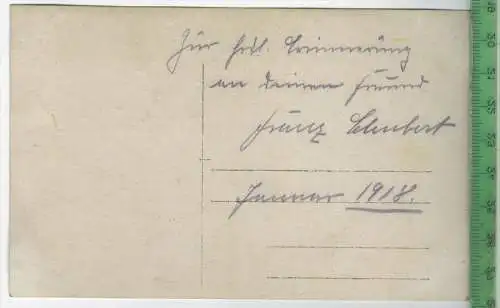 Zur frdl. Erinnerung
an deinen Freund
Franz Schubert
Januar 1918.